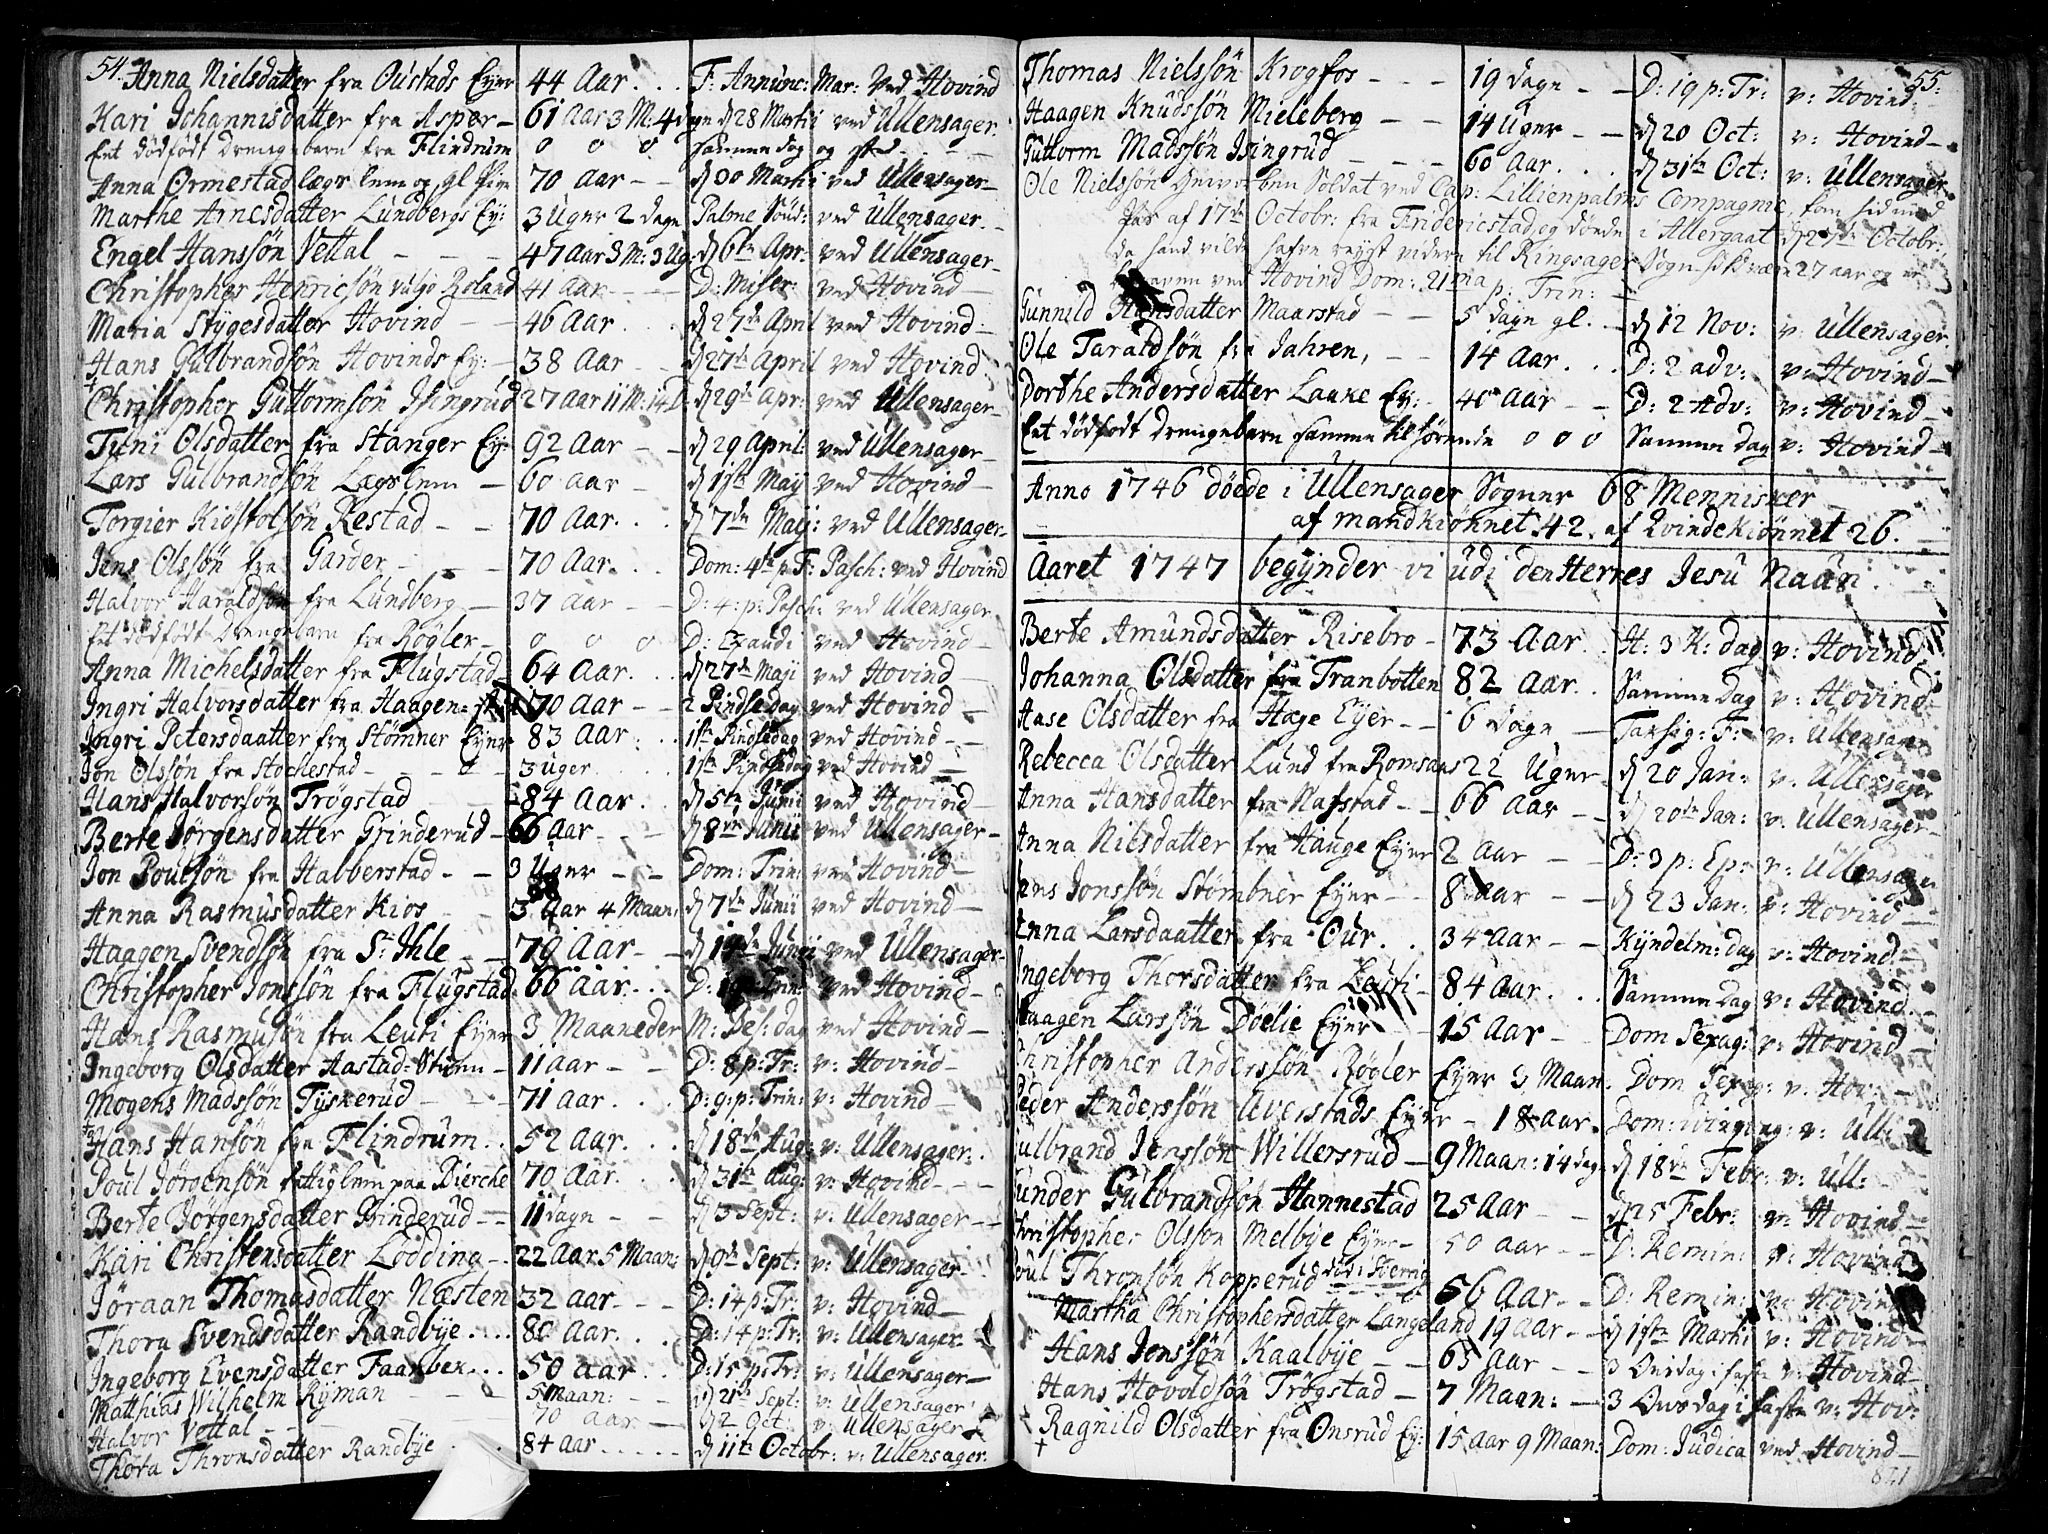 54.
Anna Nielsdatter fra Oustads Eyer 44 Aar . . . F: Annunc: Mar: Ved Hovind
Kari Johannisdatter fra Asper – 61 Aar 3 M: 4 dagn d 28 Martii ved Ullensager.
Eet dödfödt drengebarn fra Flindrum o o o Samme dag og sted
Anna Ormestad lægs lem og gl Pige 70 Aar – – d 30 Martii ved Ullensager –
Marthe Arnesdatter Lundbergs Ey: 3 Uger 2 dagn Palme Sönd: ved Ullensager.
Engel Hanssön Vettal – – – 47 Aar 3 M: 3 Ug: d 6te Apr: ved Ullensager –
Christopher Henricsön vulgo Roland 41 Aar – – D: Miser: ved Hovind –
Maria Stygesdatter Hovind – – 46 Aar . . . d 27de April ved Hovind –
Hans Gulbrandsön Hovinds Ey: – 38 Aar – – d 27de April ved Hovind
Christopher Guttormsön Isingrud 27 Aar 11 M: 14 D: d 29de Apr: ved Ullensager –
Tyri Olsdatter fra Stanger Ey: 92 Aar – – d 29 April: ved Ullensager –
Lars Gulbrandsön Lægslem – 60 aar – d 1ste Maij ved Hovind –
Torgier Kidstolsön Restad – – 70 Aar. . . d 7de Maij: ved Ullensager –
Jens Olssön fra Garder – – – 70 Aar. . . Dom: 4te p F: Pasch: ved Hovind
Halvor Haraldsön fra Lundberg – 37 Aar – – D: 4: p: Pasch: ved Ullensager.
Eet dödfödt Drengebarn fra Rögler – o o o D: Exaudi ved Hovind –
Anna Michelsdatter fra Flugstad – 64 Aar. . . d 27de Maji ved Hovind
Ingri Halvorsdatter fra Haagen= 70 Aar – – 2 Pindsedag ved Hovind –
Ingri Petersdaatter fra Stömner Eyer 83 Aar . . . 1ste Pindsedag ved Hovind –
Jon Olssön fra Stochestad – – – 3 uger . . . 1ste Pindsedag ved Hovind –
Hans Halvorsön Trögstad – 84 Aar . . . d 5te Junii ved Hovind –
Berte Jörgensdatter Grinderud – 66 Aar – – d 8de Junii ved Ullensager –
Jon Poulsön fra Habberstad – – 3 Uger – – Dom: Trin: ved Hovind –
Anna Rasmusdatter Kios – – 3 Aar 4 Maan: d 7de Junii ved Hovind –
Haagen Svendsön fra St: Ihle – – 70 Aar – – d 14de Junii ved Ullensager –
Christopher Jonssön fra Flugstad 66 Aar. . . D: Trin: ved Hovind –
Hans Rasmusön fra Leuti Eyer 3 Maaneder M: Bes: dag ved Hovind –
Ingeborg Olsdatter Aastad= – 11 aar – – D: 8 p: Tr: v: Hovind –
Mogens Madssön Tyskerud – – 71 Aar . . . D: 9: p: Trin: v: Hovind –
Hans Hansön fra Flindrum . . 52 Aar. . . d 18de Aug: v: Ullensager . .
Poul Jörgensön fattiglem paa Bierche 70 Aar. . . d 31te Aug: v: Hovind – – –
Berte Jörgensdatter Grinderud – – 11 dagn – – d 3 Sept: v: Ullensager – –
Kari Christensdatter Lödding – . 22 Aar 5 Maan: d 9de Sept: v: Ullensager – .
Jöraan Thomasdatter Næsten 32 Aar – – – D: 14 p: Tr: v: Hovind –
Thora Svendsdatter Randbye . . . . 80 Aar. . . D: 14 p: Tr: v: Ullensager –
Ingeborg Evensdatter Faarbek . . . 50 Aar . . D: 15 p: Tr: v: Ullensager –
Matthias Wilhelm Ryman – – 5 Maan: – – d 21te Sept: v: Ullensager
Halvor Vettal – – 70 Aar – – d 2 Oct: v: Ullensager
Thora Thronsdatter Randbye . . 84 Aar . . . . . d 11te Octobr: v: Ullensager.
55:
Thomas Nielssön Krogfos – – – 19 dagn – – D: 19 p: Tr: v: Hovind.
Haagen Knudssön Mieleberg – – 14 Uger – – d 20 Oct: v: Hovind –
Guttorm Madssön Isingrud – – – 60 Aar . . . d 31te Oct: v: Ullensager
Ole Nielssön Soldat ved Cap: Lillienpalms Compagnie, som hid med
Pas af 17de Octobr: fra Friderichstad, og döede i Allergaat d 27de Octobr:
da hand vilde hafve reyst videre til Ringsager Sogn 27 aar og er
ved Hovind Dom: 21ma p: Trin: –
Gunnild Hansdatter Maarstad – – 5 dagn gl. – d 12 Nov: v: Ullensager.
Ole Taraldsön fra Jahren, – – 14 Aar. . . D: 2 adv: v: Hovind –
Dorthe Andersdatter Laake Ey: – 40 Aar – – D: 2 Adv: v: Hovind –
Eet dödfödt drengebarn samme tilhörende o o o Samme dag v: Hovind –
Anno 1746 döede i Ullensager Sogner 68 Mennisker
af mandkiönnet 42. af Qvindekiönnet 26.
Aaret 1747 begynder vi udi den Herres Jesu Naun.
Berte Amundsdatter Risebro – 73 Aar. . H: 3 K: dag v: Hovind
Johanna Olsdatter fra Tranbotten 82 Aar. . Samme dag v: Hovind
Aase Olsdatter fra Hage Eyer – – 6 dage – Tarsig: F: v: Ullensager
Rebecca Olsdatter Lund fra Romsaas 22 Uger – d 20 Jan: v: Ullensager
Anna Hansdatter fra Nafstad – – 66 Aar – – d 20de Jan: v: Ullensager –
Anna Nielsdatter fra Hauge Eyer 2 Aar – – D: 3 p: Ep: v: Ullensager
Hans Jonssön Störmbner Eyer – – 8 Aar – – d 23 Jan: v: Hovind –
Anna Larsdaatter fra Our. . . 34 Aar – – Kyndelm: dag v: Hovind –
Ingeborg Thorsdatter fra Leuti – 84 Aar. . . Samme dag v: Hovind.
Haagen Larssön Döelie Eyer – – 15 Aar – Dom Sexag: v: Hovind –
Christopher Anderssön Rögler Eyer 3 Maan. Dom Sexag: v. Hov: –
Peder Anderssön Averstads Eyer – 18 Aar. Dom: qvinqvag: v: Ull:
Gulbrand Jenssön Willersrud – 9 Maan: 14 dage d 18de Febr: v: Ull: –
Gunder Gulbrandsön Hannestad 25 Aar – – d 25 Febr: v: Hovind –
Christopher Olsson Melbye Eyer – 50 Aar – – D: Remin: v: Hovind
Poul Thronsön Kopperud död i Söerig 56 Aar – – D: Remin: v: Hovind
Martha Christophersdatter Langeland 19 Aar – – d 1ste Martii v: Hovind –
Hans Jonssön Kaalbye – – 63 Aar – – 3 Onsdag i faste v: Hovind –
Hans Hovoldsön Trögstad – 7 Maan: – 3 Onsdag i faste v: Hov:
Ragnild Olsdatter fra Onsrud Ey: 15 Aar 9 Maan: Dom: Judica ved Hovind –